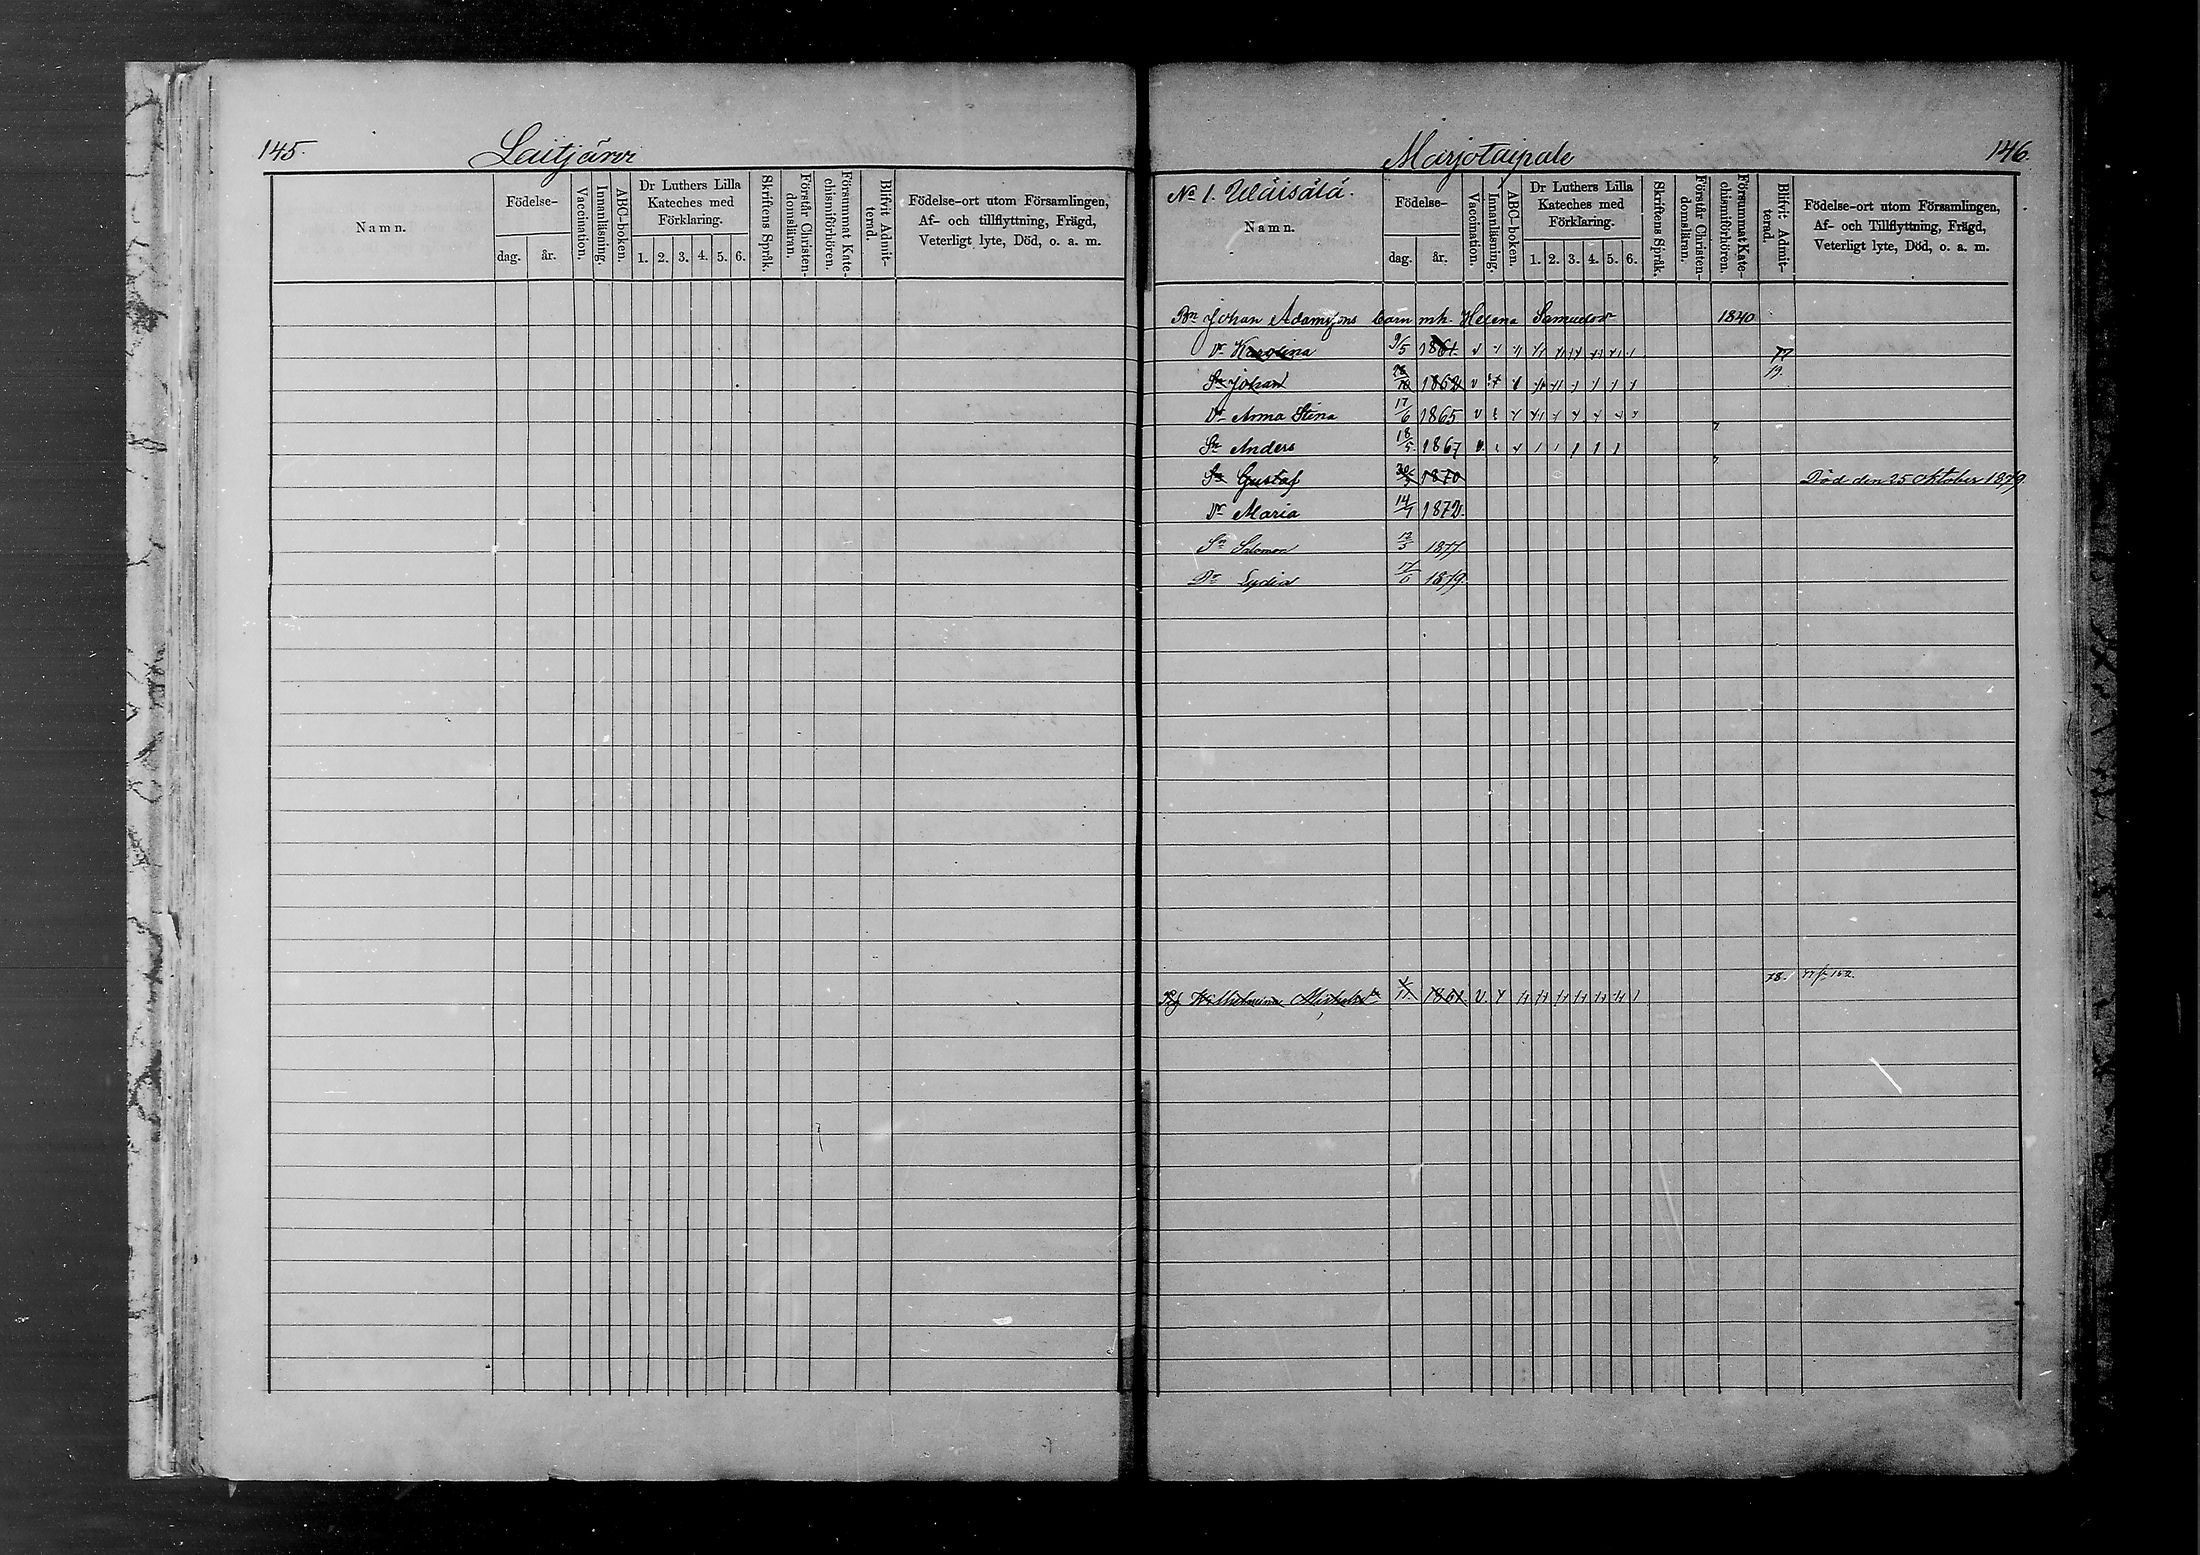 145.
Laitjärvi
Namn.
Födelse-
dag.
år.
Vaccination.
Innanläsning.
ABC-boken.
Dr Luthers Lilla
Kateches med
Förklaring.
1. 2. 3. 4. 5. 6.
Skriftens Språk.
Förstår Christen-
domsläran.
Försummat Kate-
chismiförhören.
Blifvit Admit-
terad.
Födelse-ort utom Församlingen,
Af- och tillflyttning, Frägd,
Veterligt lyte, Död, o. a. m.
Marjotaipale
146.
No 1. Uläisälä.
Namn.
Födelse-
dag.
år.
Vaccination.
Innanläsning.
ABC-boken.
Dr Luthers Lilla
Kateches med
Förklaring.
1. 2. 3. 4. 5. 6.
Skriftens Språk.
Förstår Christen-
domsläran.
Försummat Kate-
chismiförhören.
Blifvit Admit-
terad.
Födelse-ort utom Församlingen,
Af- och Tillflyttning, Frägd,
Veterligt lyte, Död, o. a. m.
Bn Johan Adamssons barn mh. Helena Samuelsdr 1840
Dr Karolina 9/5 1861 77
Sn Johan 1862 79.
Dr Anna Stina 17/6 1865
Sn Anders 18/5 1867
Sn Gustaf 1870 Död den 25 Oktober 1879.
Dr Maria 14/1 1872.
Sn Salomon 12/5 1877
Dr Lydia 17/6 1879.
78.
Wilhelmina 1861 V.